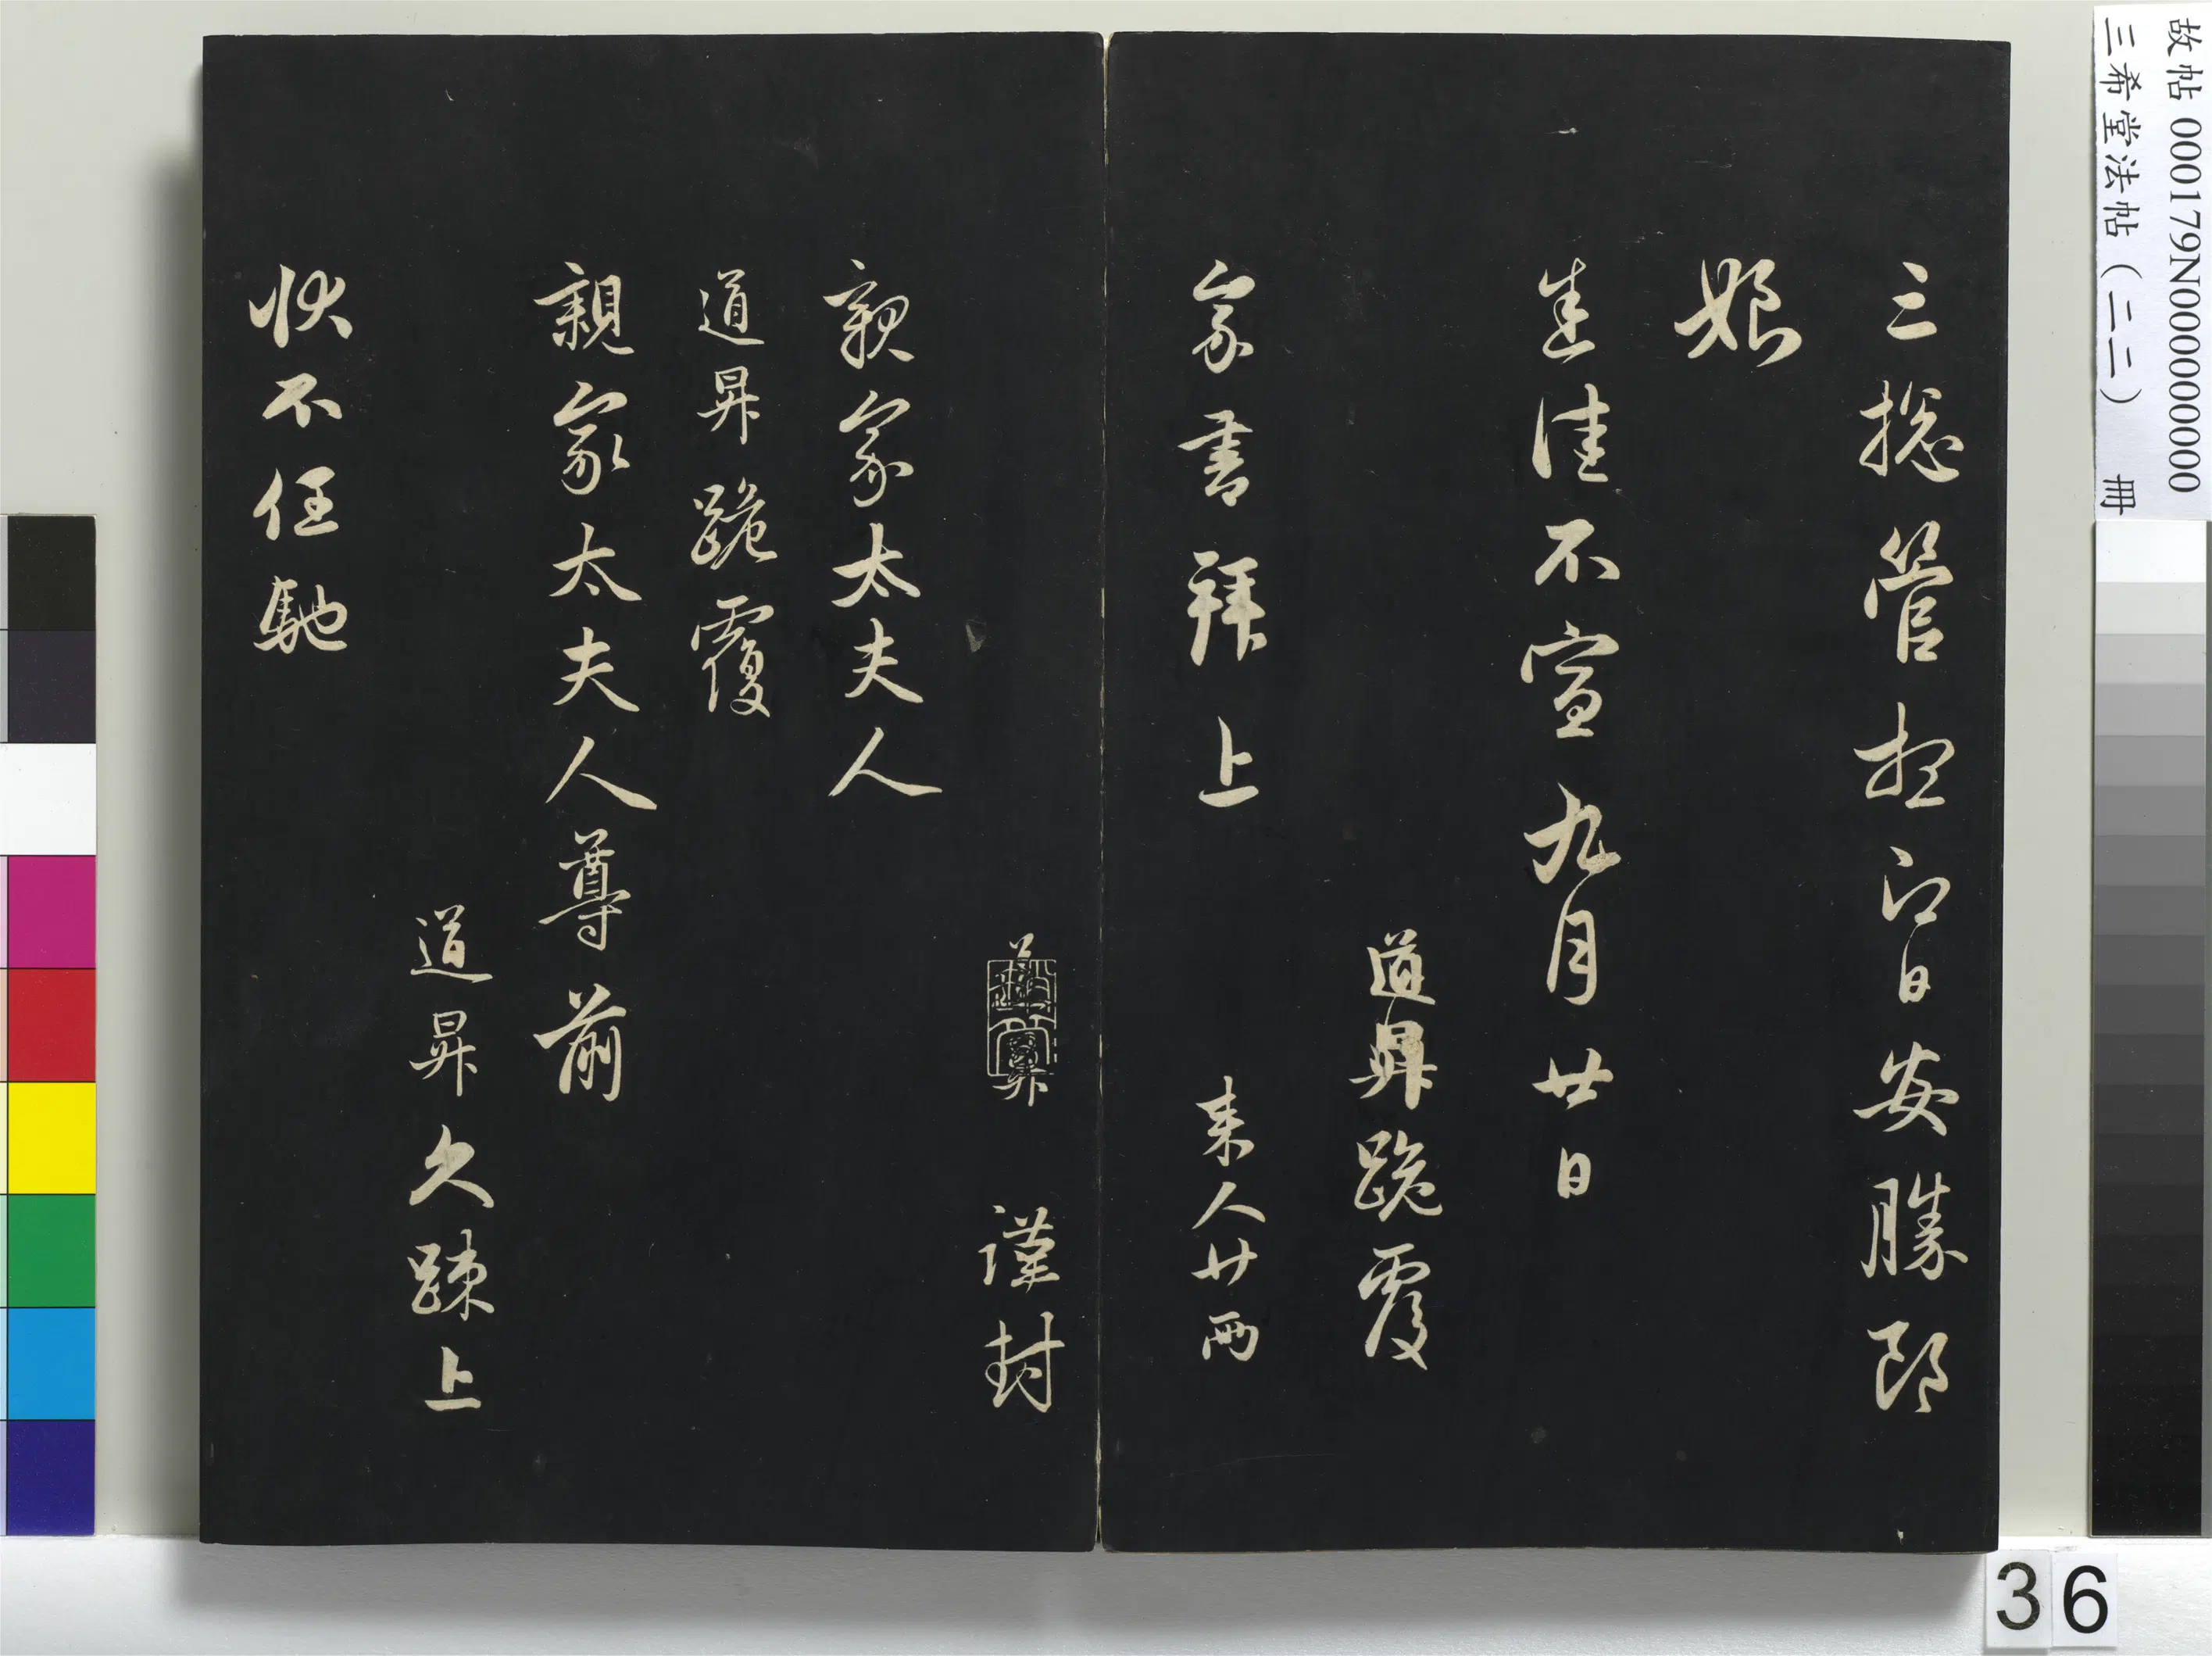 三捴管想即日安勝郎
娘
進佳不宣九月廿日
道昇跪覆
家書拜上
来人廿两
道昇
謹封
親家太夫人
道昇跪覆
親家太夫人尊前
道昇久疎上
狀不任馳
故帖 000179N000000000
三希堂法帖（二二） 冊
36